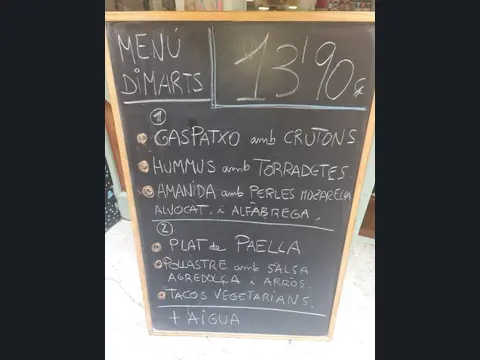 MENÚ
DIMARTS
13'90€
1
GASPATXO amb CRUTONS
HUMMUS amb TORRADETES.
AMANIDA amb PERLES MOZARELLA
ALVOCAT, i ALFÀBREGA.
2
PLAT de PAELLA
POLLASTRE amb SALSA
AGREDOLÇA i ARRÒS.
TACOS VEGETARIANS.
+ AIGUA